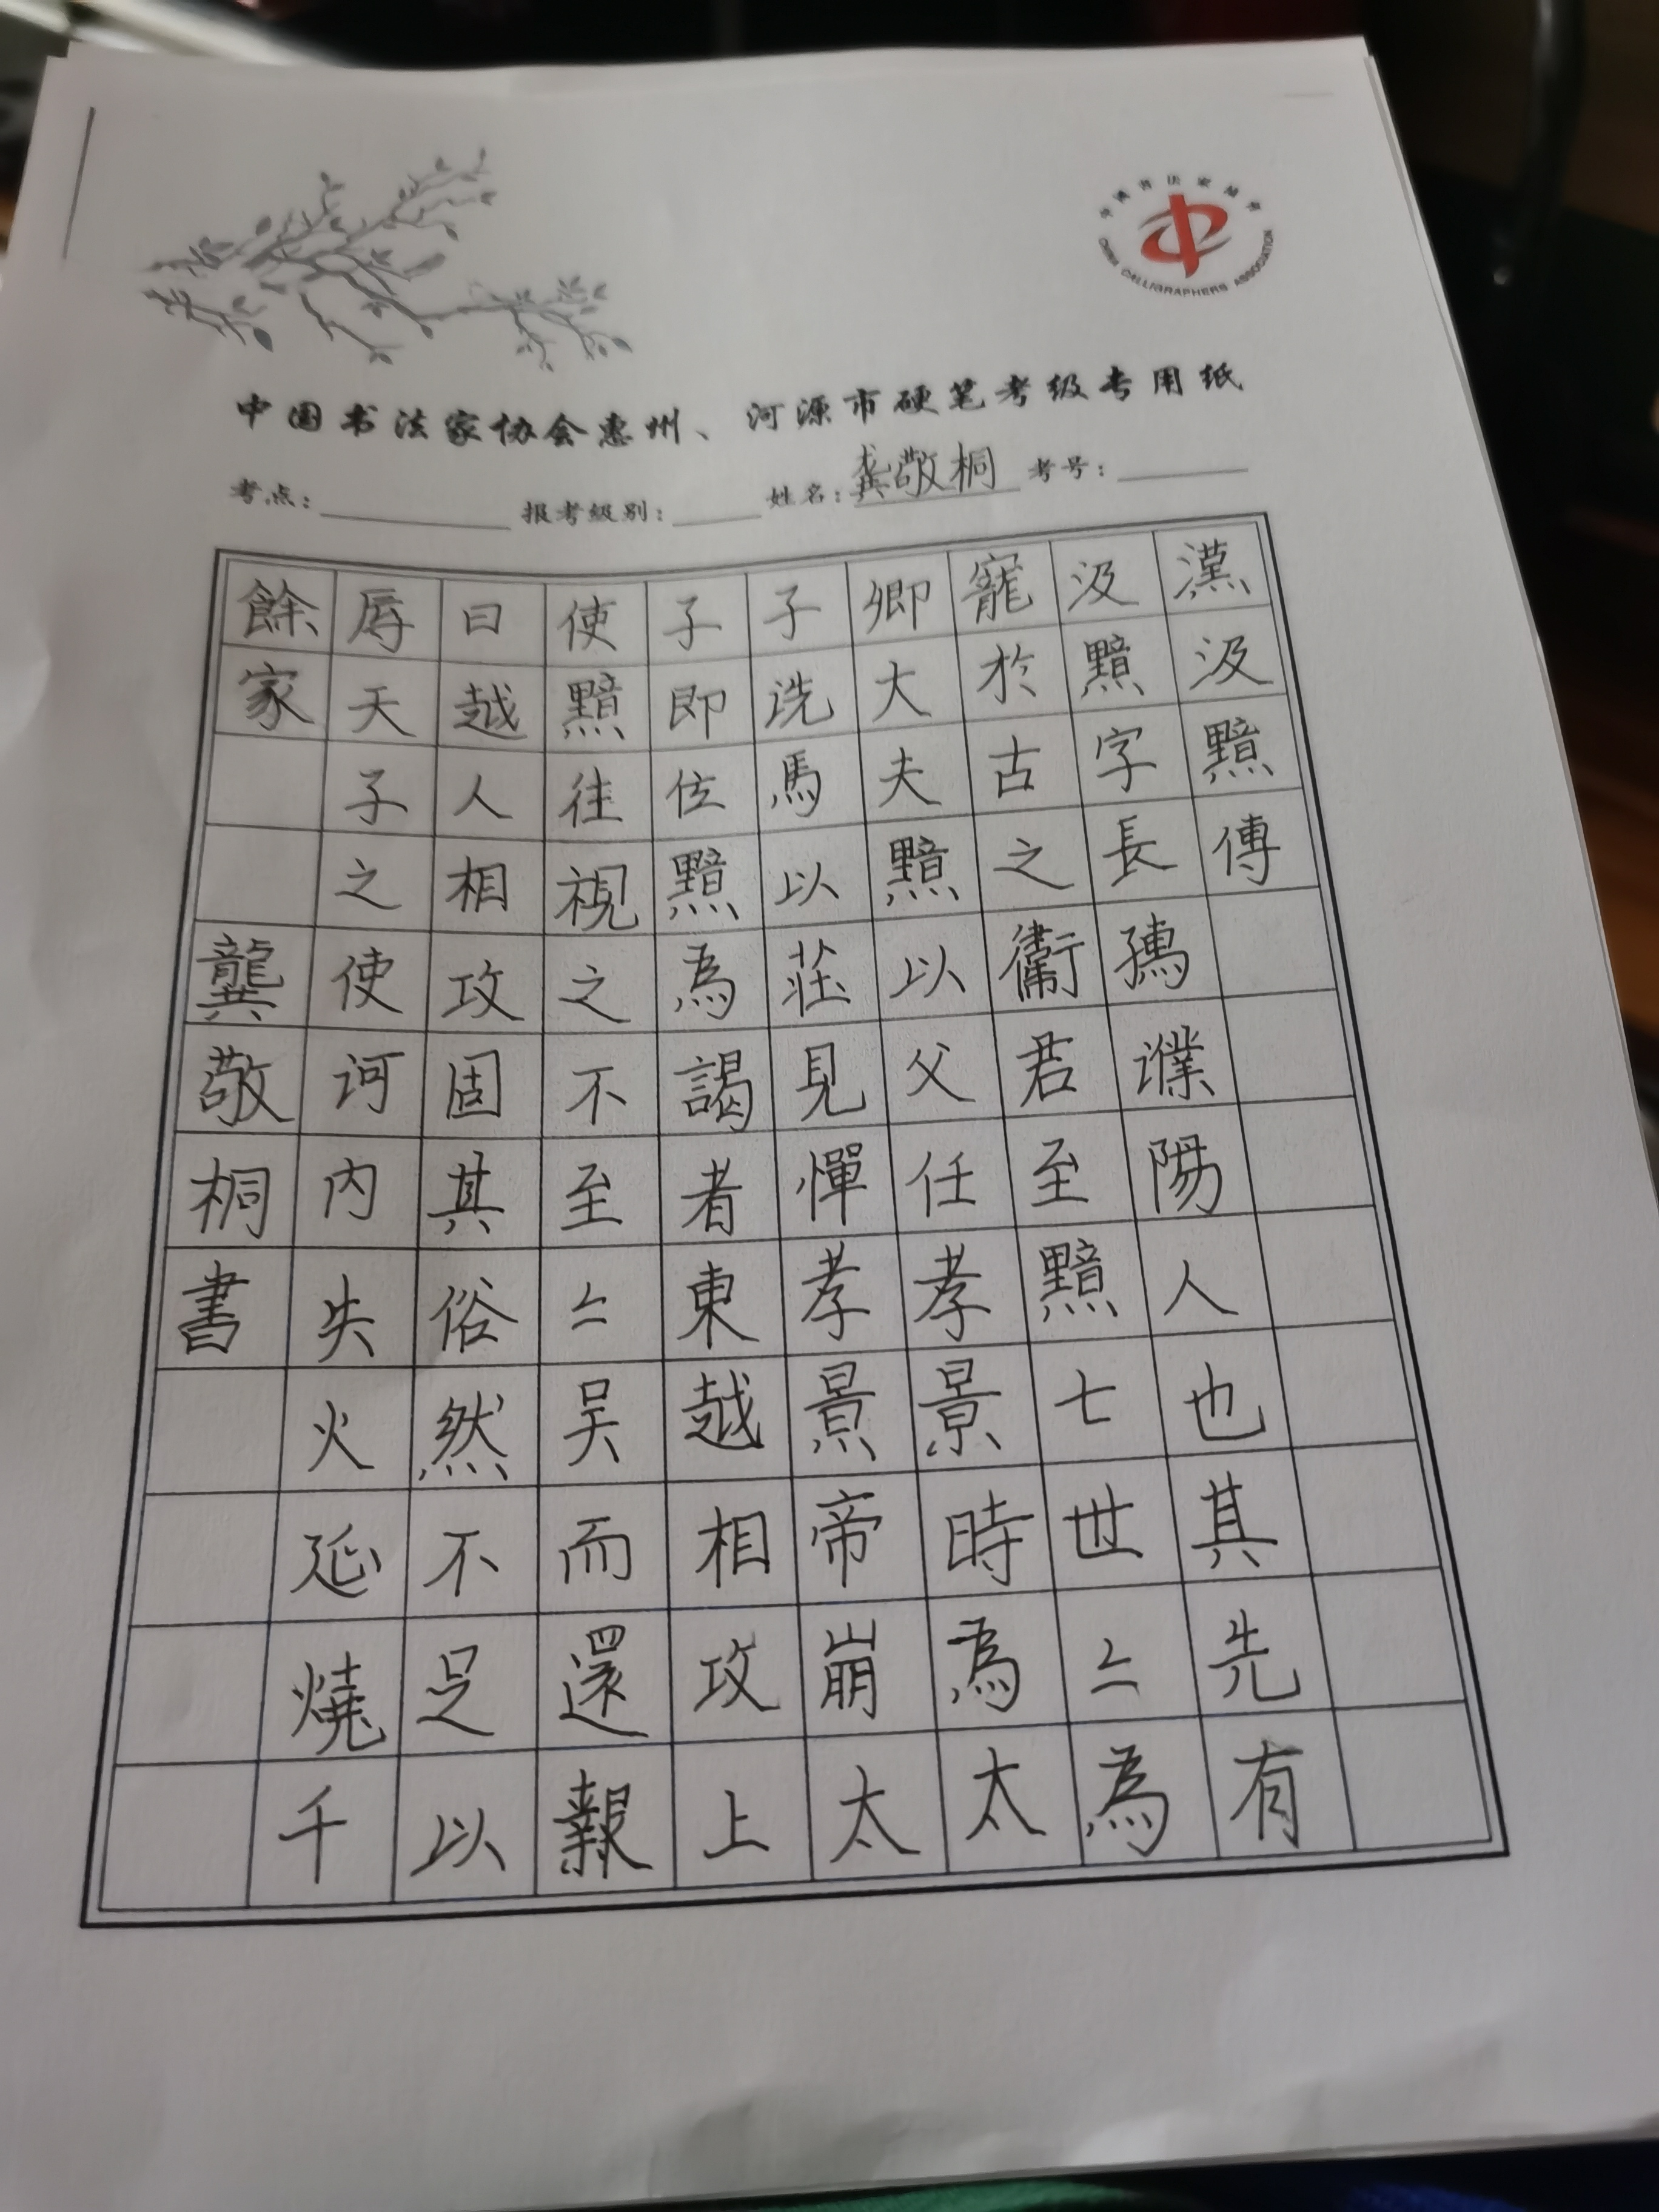 中国书法家协会
CHINA CALLIGRAPHERS ASSOCIATION
中国书法家协会惠州、河源市硬笔考级专用纸
考点: 报考级别: 姓名:龚敬桐 考号:
漢汲黯傳
汲黯字長孺濮陽人也其先有
寵於古之衛君至黯七世〻為
卿大夫黯以父任孝景時為太
子洗馬以莊見憚孝景帝崩太
子即位黯為謁者東越相攻上
使黯往視之不至〻吴而還報
曰越人相攻固其俗然不足以
辱天子之使河内失火延燒千
餘家 龔敬桐書